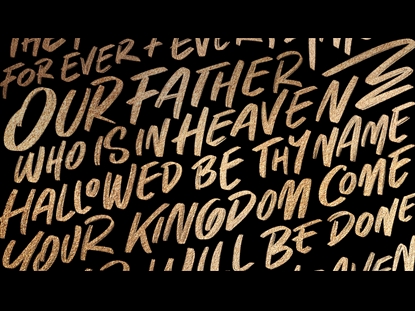 FOR EVER + EVER
OUR FATHER
WHO IS IN HEAVEN
HALLOWED BE THY NAME
YOUR KINGDOM COME
WILL BE DONE
HEAVEN